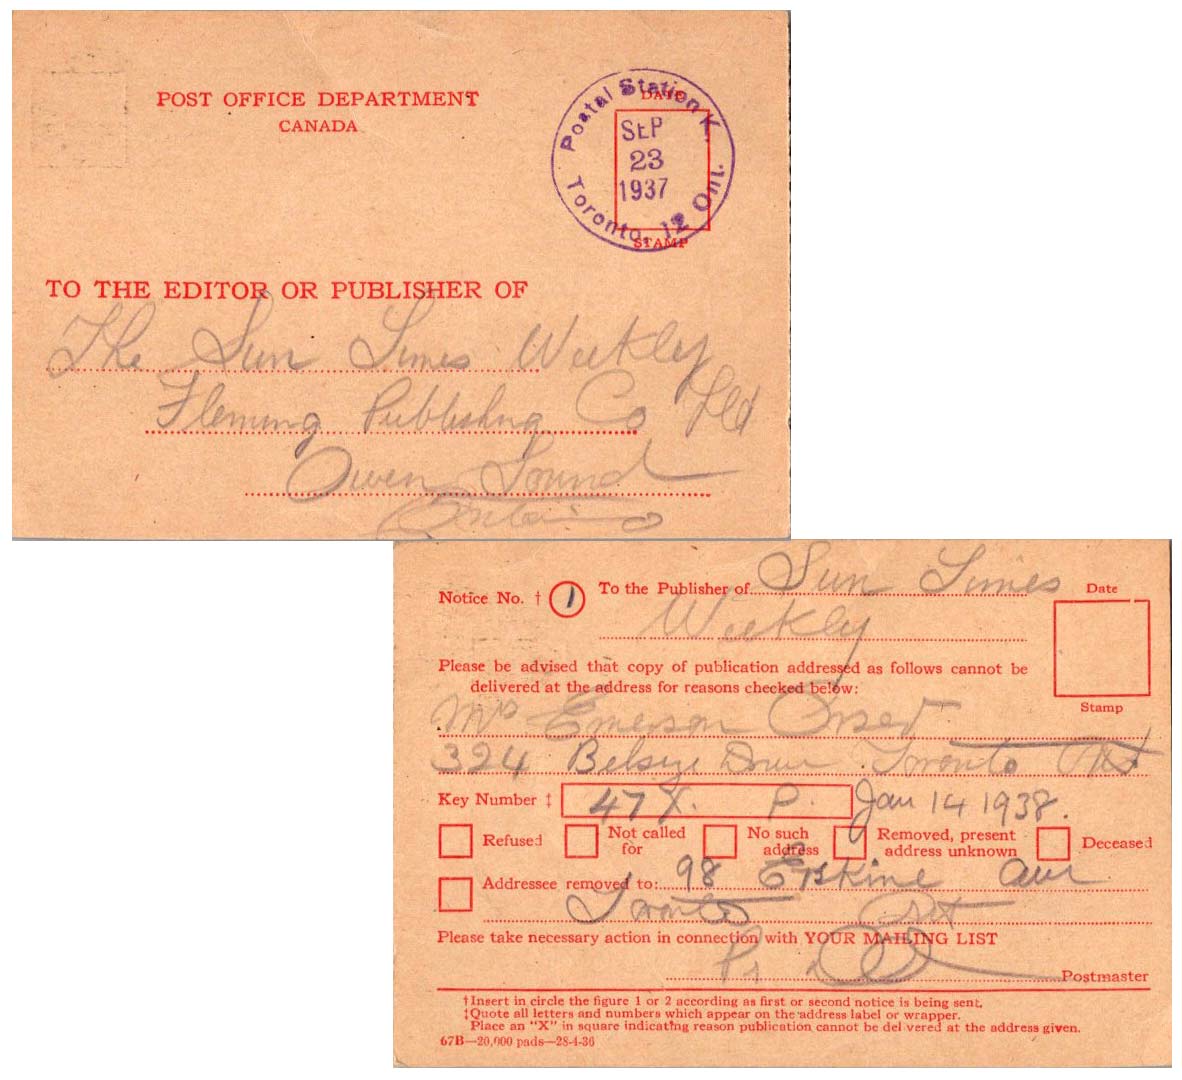 POST OFFICE DEPARTMENT
CANADA
DATE
Postal Station K.
SEP
23
1937
Toronto, 12 Ont.
STAMP
TO THE EDITOR OR PUBLISHER OF
The Sun Times Weekly
Fleming Publishing Co Ltd
Owen Sound
Ontario
Notice No. † 1 To the Publisher of Sun Times
Weekly
Date
Please be advised that copy of publication addressed as follows cannot be
delivered at the address for reasons checked below:
Stamp
Mrs Emerson
324 Belsize Drive Toronto Ont
Key Number ‡ 47 X. P. Jan 14 1938.
Refused Not called for No such address Removed, present address unknown Deceased
Addressee removed to: 98 Erskine Ave
Toronto Ont
Please take necessary action in connection with YOUR MAILING LIST
Postmaster
†Insert in circle the figure 1 or 2 according as first or second notice is being sent.
‡Quote all letters and numbers which appear on the address label or wrapper.
Place an "X" in square indicating reason publication cannot be delivered at the address given.
67B—20,000 pads—28-4-36